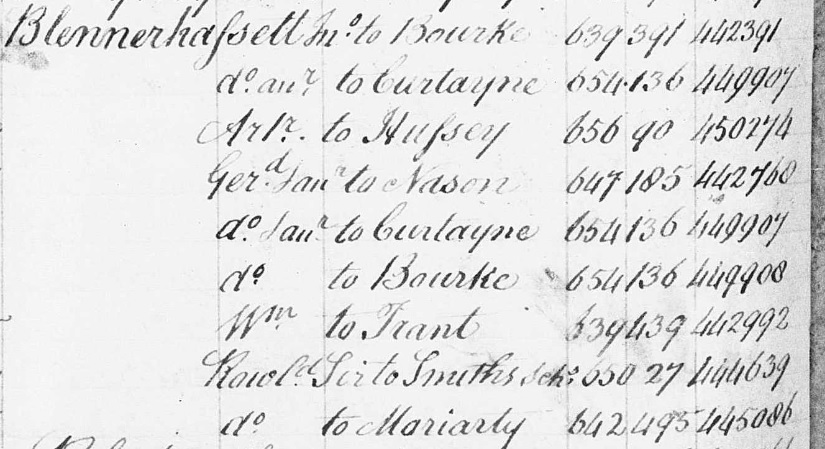 Blennerhassett Jnº to Bourke 639 391 442391
dº anr to Curtayne 654 136 449907
Artr. to Hussey 656 90 450274
Gerd Laur to Nason 647 185 442760
dº Laur to Curtayne 654 136 449907
dº to Bourke 654 136 449908
Wm to Trant 639 439 442992
Rowld Sir to Smiths Schs 650 27 444639
dº to Moriarty 642 495 445086